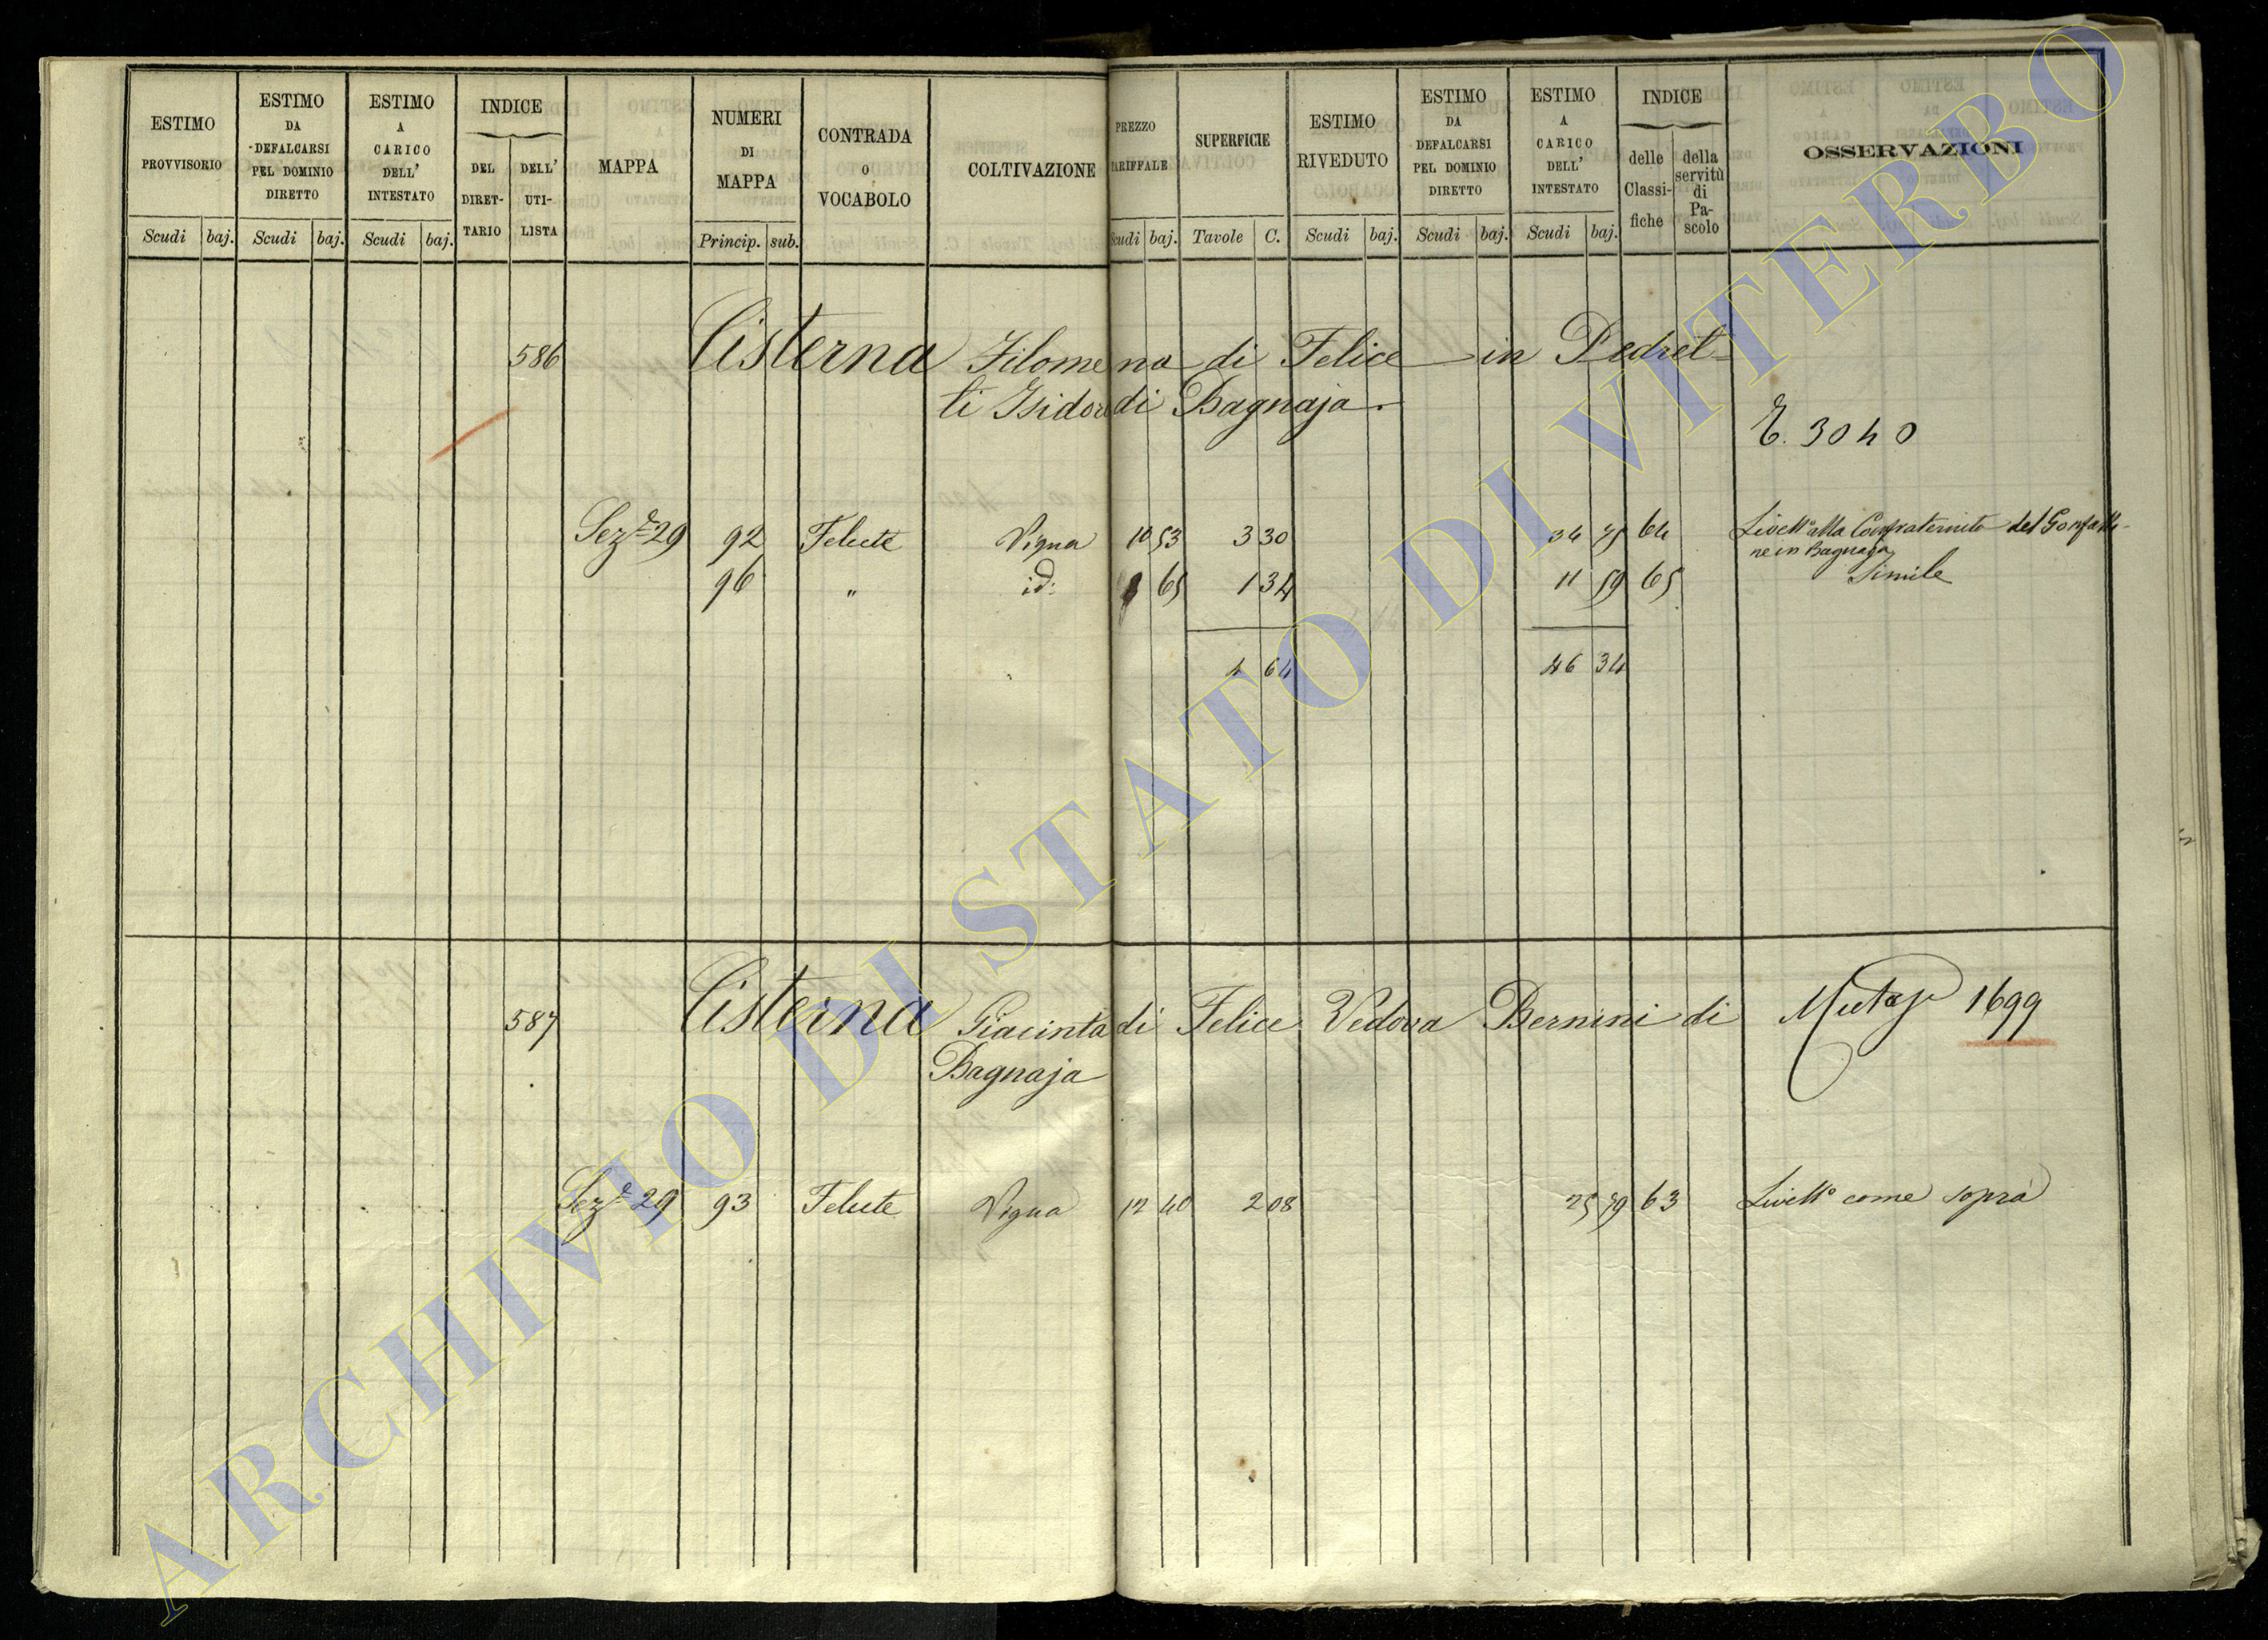 ESTIMO PROVVISORIO
Scudi baj.
ESTIMO DA DEFALCARSI PEL DOMINIO DIRETTO
Scudi baj.
ESTIMO A CARICO DELL' INTESTATO
Scudi baj.
INDICE
DEL DIRET-TARIO
DELL' UTI-LISTA
MAPPA
NUMERI DI MAPPA
Princip. sub.
CONTRADA O VOCABOLO
COLTIVAZIONE
PREZZO TARIFFALE
Scudi baj.
SUPERFICIE
Tavole C.
ESTIMO RIVEDUTO
Scudi baj.
ESTIMO DA DEFALCARSI PEL DOMINIO DIRETTO
Scudi baj.
ESTIMO A CARICO DELL' INTESTATO
Scudi baj.
INDICE
delle Classi-fiche
della servitù di Pa-scolo
OSSERVAZIONI
586 Cisterna Filomena di Felice in Pedret-
ti Isidoro di Bagnaja.
E. 3040
Sez.e 29 92 Felcete Vigna 10 53 3 30 34 75 64 Livell.o alla Confraternita del Gonfalo-
ne in Bagnaja
96 " id: 8 65 1 34 11 59 65 Simile
4 64 46 34
587 Cisterna Giacinta di Felice Vedova Bernini di Mutaz 1699
Bagnaja
Sez.e 29 93 Felcete Vigna 12 40 2 08 25 79 63 Livell.o come sopra
ARCHIVIO DI STATO DI VITERBO